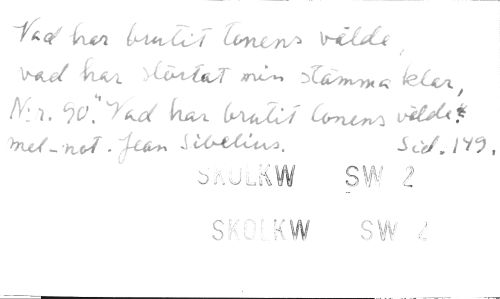 Vad har brutit tonens välde,
vad har störtat min stämma klar,
N:r. 90. "Vad har brutit tonens välde"
mel-not. Jean Sibelius. Sid. 149.
SKOLKW SW 2
SKOLKW SW 2